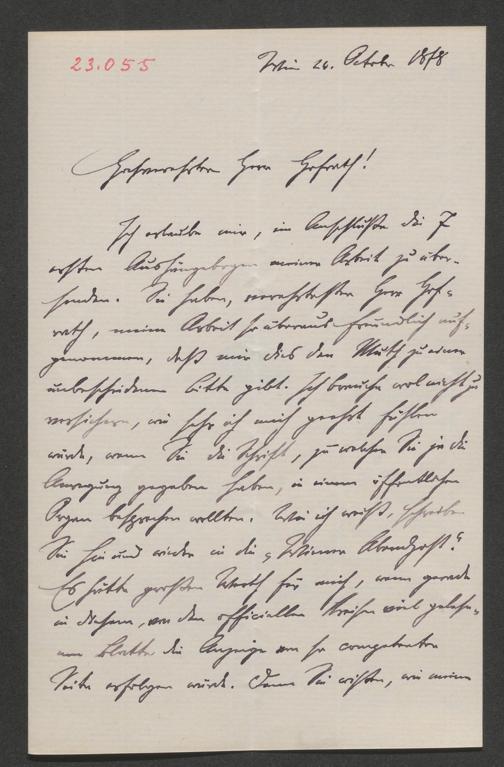 23.055
Wien 26. October 1878
Hochverehrter Herr Hofrath!
Ich erlaube mir, im Anschluße die 7
ersten Aushängebogen meiner Arbeit zu über-
senden. Sie haben, verehrtester Herr Hof-
rath, meine Arbeit so überaus freundlich auf-
genommen, daß mir dies den Muth zu einer
unbescheidenen Bitte gibt. Ich brauche wol nicht zu
versichern, wie sehr ich mich geehrt fühlen
würde, wenn Sie die Schrift, zu welcher Sie ja die
Anregung gegeben haben, in einem öffentlichen
Organ besprechen wollten. Wie ich weiß, schreiben
Sie hie und wieder in die „Wiener Abendpost“.
Es hätte großen Werth für mich, wenn gerade
in diesem, von den officiellen Kreisen viel gelese-
nen Blatte die Anzeige von so competenter
Seite erfolgen würde. Denn Sie wißen, wie meine